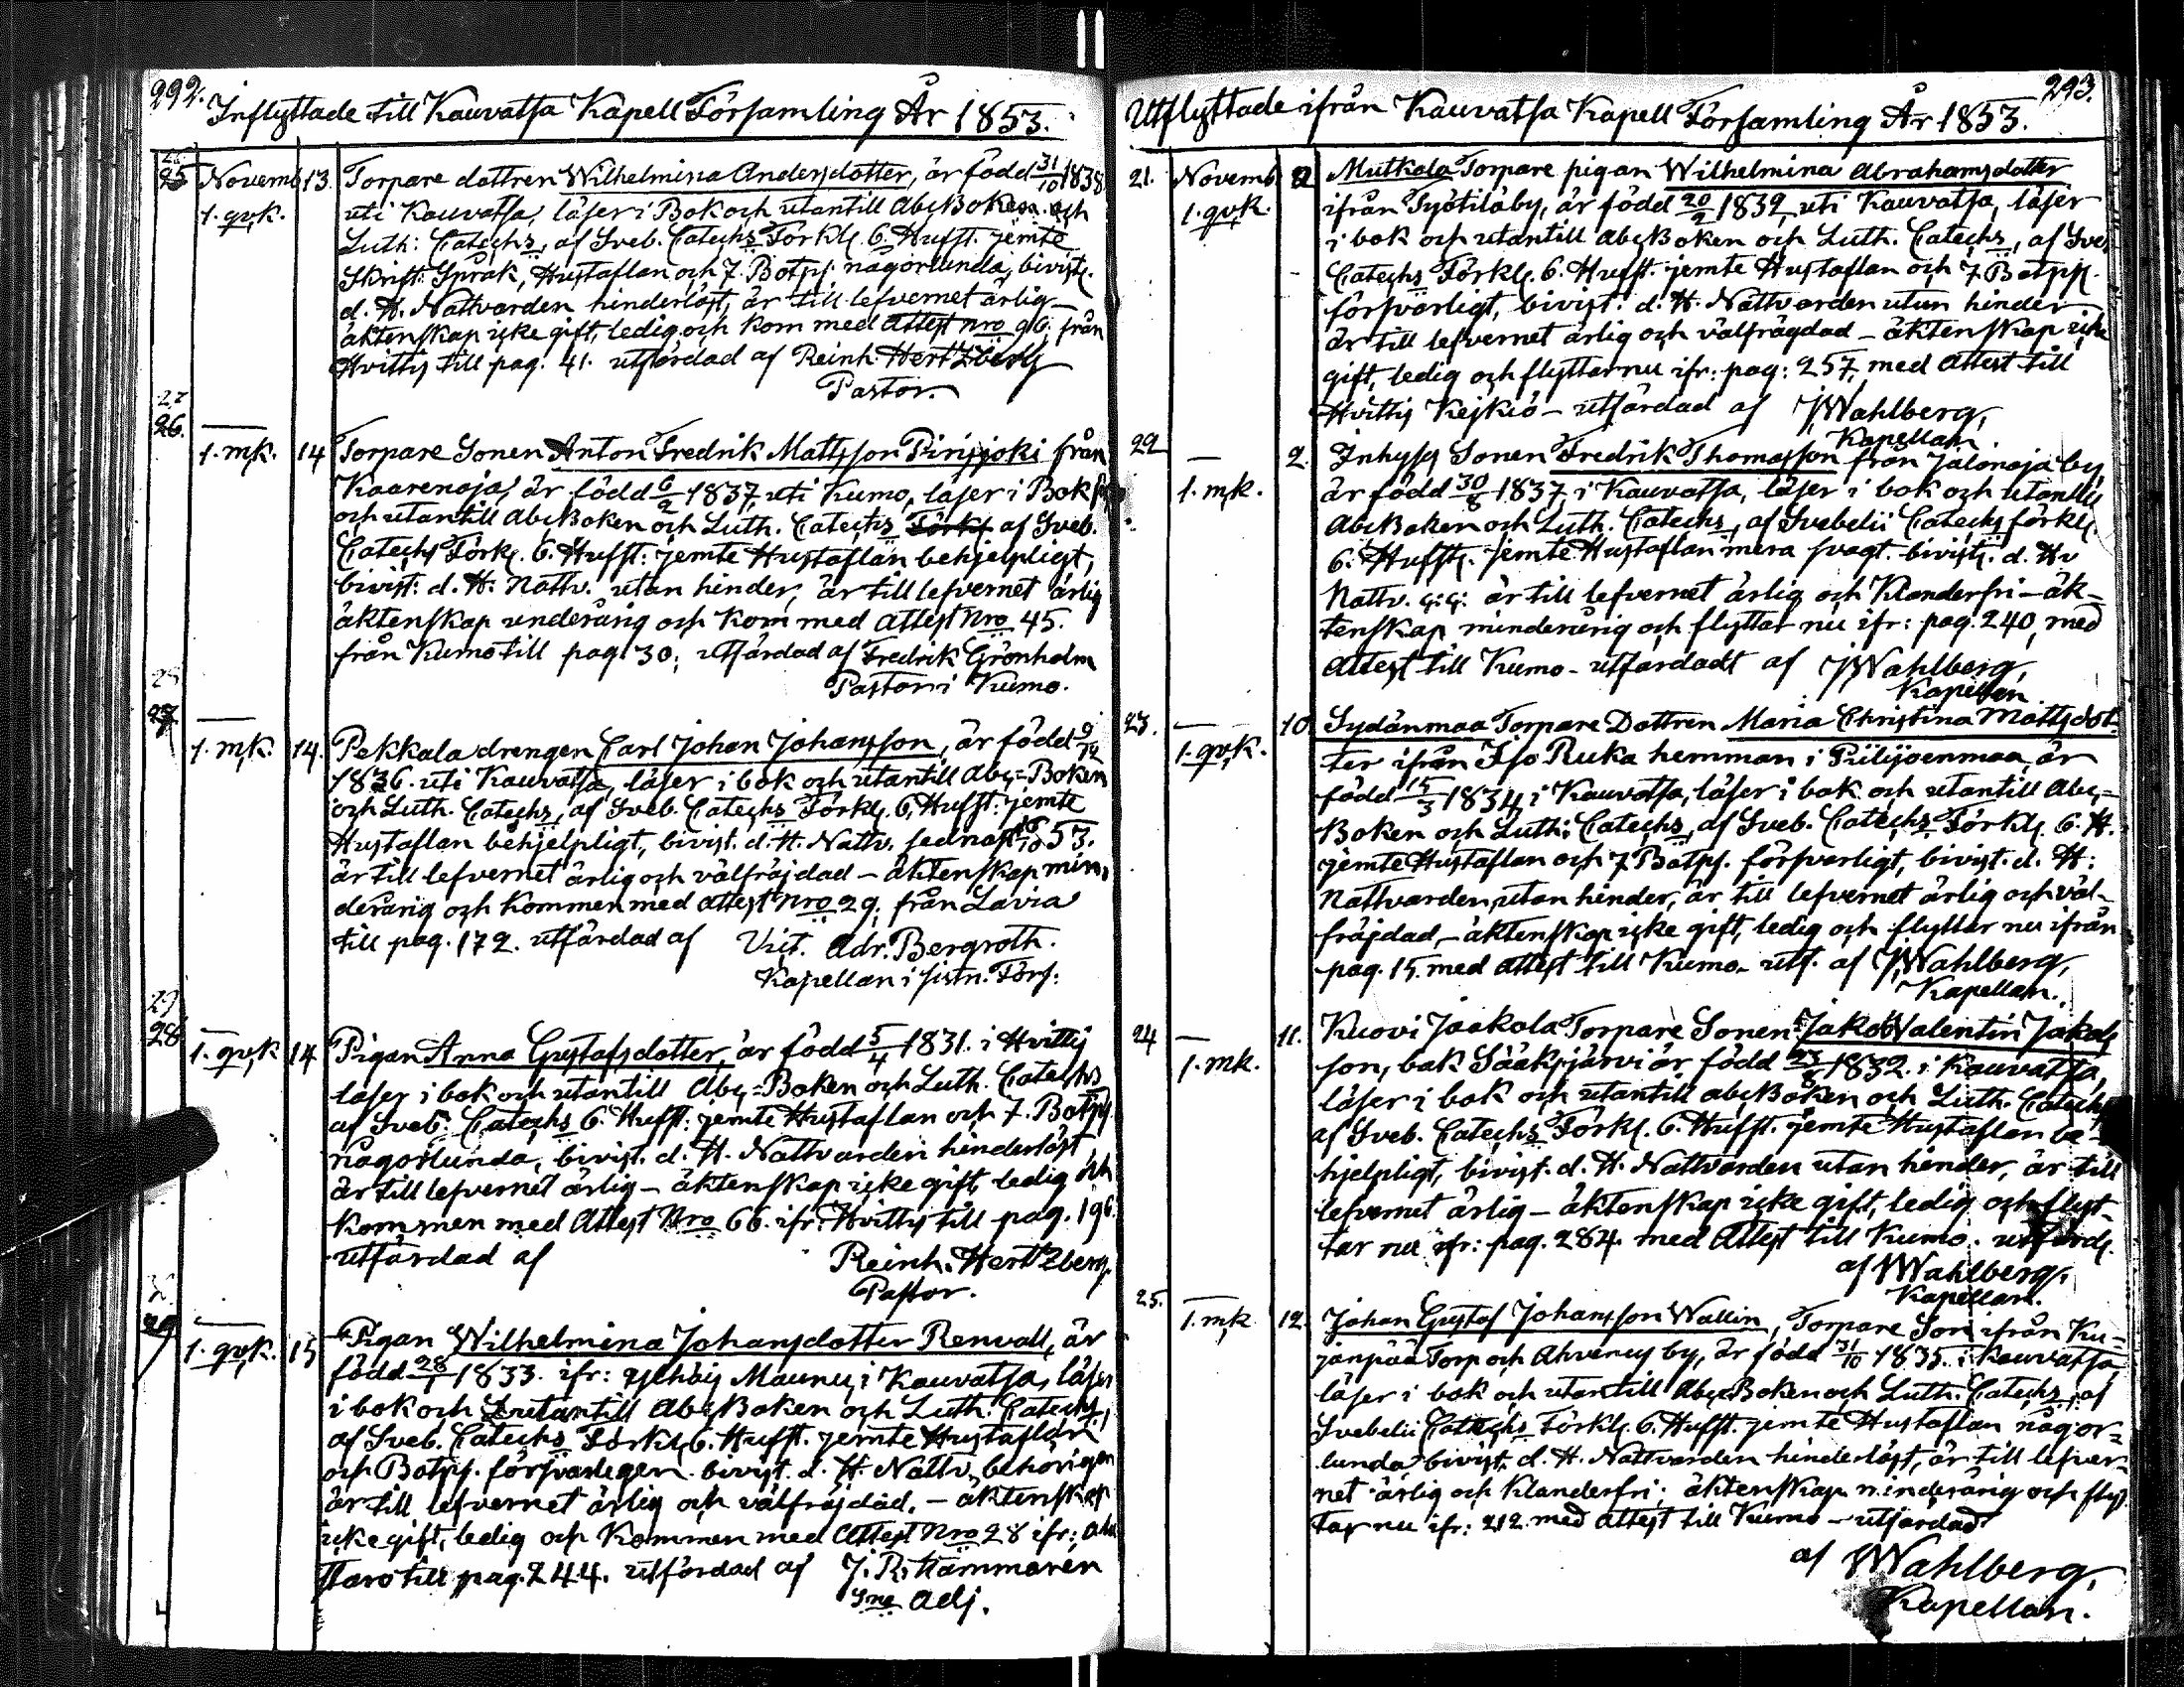 292.
Inflyttade till Kauvatsa Kapell Församling År 1853.
25 Novemb 13. Torpare dottren Wilhelmina Andersdotter, är född 31/10 1838
1. qvk. uti Kauvatsa, läser i Bok och utantill Abc Boken och
Luth: Catechs, af Sveb. Catechs Förkl. 6. Hufst. jemte
Skrift: Språk, Hustaflan och 7. Botps: någorlunda, bivist.
d. H. Nattvarden hinderlöst, är till lefvernet ärlig –
äktenskap icke gift, ledig och kom med Attest Nro 96. från
Hvittis till pag. 41. utfärdad af Reinh. HertZberg
Pastor.
27
26. — 1. mk. 14 Torpare Sonen Anton Fredrik Mattsson Pirisjoki från
Kaarenoja, är född 6/2 1837, uti Kumo, läser i Bok
och utantill Abc Boken och Luth. Catechs Förkl af Sveb.
Catechs Förkl. 6. Hufst. jemte Hustaflan behjelpligt,
bivist: d. H. Nattv. utan hinder, är till lefvernet ärlig
äktenskap underårig och kom med Attest Nro 45.
från Kumo till pag. 30; utfärdad af Fredrik Grönholm
Pastor i Kumo.
27 — 1. mk. 14. Pekkala drengen Carl Johan Johansson, är född 9/12
1836. uti Kauvatsa, läser i bok och utantill Abc-Boken
och Luth. Catechs, af Sveb. Catechs Förkl. 6. Hufst. jemte
Hustaflan behjelpligt, bivist. d. H. Nattv. sednast 16/10 53.
är till lefvernet ärlig och välfräjdad – äktenskap min-
derårig och kommer med attest Nro 29. från Lavia
till pag. 172. utfärdad af Vict. Adr. Bergroth.
Kapellan i sistn. Förs:
29
28 — 1. qvk 14 Pigan Anna Gustafsdotter, är född 5/4 1831. i Hvittis
läser i bok och utantill Abc-Boken och Luth. Catechs
af Sveb. Catechs 6. Hufst: jemte Hustaflan och 7. Botps.
någorlunda, bivist. d. H. Nattvarden hinderlöst
är till lefvernet ärlig – äktenskap icke gift, ledig och
kommen med Attest Nro 66. ifr: Hvittis till pag. 196.
utfärdad af Reinh. HertZberg.
Pastor.
29 — 1. qvk. 15 Pigan Wilhelmina Johansdotter Renvall, är
född 28/1 1833. ifr: Maunu, i Kauvatsa, läser
i bok och utantill Abc Boken och Luth. Catechs,
af Sveb. Catechs Förkl. 6. Hufst. jemte Hustaflan
och Botps. försvarligen. bivist. d. H. Nattv. behörigen
är till lefvernet ärlig och välfräjdad. – äktenskap
icke gift, ledig och kommen med Attest Nro 28 ifr:
till pag. 244. utfärdad af J. R. Hammarén
Adj.
293.
Utflyttade ifrån Kauvatsa Kapell Församling År 1853.
21. Novemb. Mutkala Torpare pigan Wilhelmina Abrahamsdotter
1. qvk. ifrån Työtiläby, är född 20/2 1832 uti Kauvatsa, läser
i bok och utantill Abc Boken och Luth. Catechs, af Sveb
Catechs Förkl. 6. Hufst. jemte Hustaflan och 7. Botps.
försvarligt, bivist: d. H. Nattvarden utan hinder
är till lefvernet ärlig och välfrägdad – äktenskap icke
gift, ledig och flyttar nu ifr: pag: 257, med Attest till
Hvittis Kejkiö – utfärdad af JWahlberg,
Kapellan.
22 — 1. mk. 2. Inhyses Sonen Fredrik Thomasson från Jalonoja by
är född 30/8 1837, i Kauvatsa, läser i bok och utantill
Abc Boken och Luth. Catechs, af Svebelii Catechs förkl.
6. Hufst. jemte Hustaflan mera svagt. bivist. d. H
Nattv. är till lefvernet ärlig och Klanderfri – äk-
tenskap minderårig och flyttar nu ifr: pag. 240, med
Attest till Kumo – utfärdadt af JWahlberg,
Kapellan
23. — 1. qvk. 10 Sydänmaa Torpare Dottren Maria Christina Mattsdot-
ter ifrån Iso Ruka hemman i Piilijoenmaa, är
född 15/3 1834, i Kauvatsa, läser i bok och utantill Abc-
Boken och Luth: Catechs, af Sveb. Catechs Förkl. 6. H.
jemte Hustaflan och 7 Botps. försvarligt, bivist. d. H:
Nattvarden, utan hinder, är till lefvernet ärlig och väl-
fräjdad, – äktenskap icke gift, ledig och flyttar nu ifrån
pag. 15. med Attest till Kumo – utf. af JWahlberg,
Kapellan.
24 — 1. mk. 11. Kuovi Jaakola Torpare Sonen Jakob Valentin Jakobs
son, bak Sääksjärvi är född 1832. i Kauvatsa,
läser i bok och utantill abc Boken och Luth. Catechs
af Sveb. Catechs Förkl. 6. Hufst. jemte Hustaflan be-
hjelpligt, bivist. d. H. Nattvarden utan hinder, är till
lefvernet ärlig – äktenskap icke gift, ledig och flyt-
tar nu ifr: pag. 284. med Attest till Kumo. utfärd.
af JWahlberg,
Kapellan.
25. — 1. mk 12. Johan Gustaf Johansson Wallin, Torpare Son ifrån Ku-
janpää Torp och Ahvenus by, är född 31/10 1835. i Kauvatsa,
läser i bok och utantill Abc Boken och Luth. Catechs, af
Svebelii Catechs Förkl. 6. Hufst. jemte Hustaflan någor-
lunda bivist. d. H. Nattvarden hinderlöst, är till lefver-
net ärlig och Klanderfri; äktenskap minderårig och flyt
tar nu ifr: 212 med Attest till Kumo – utfärdad
af JWahlberg,
Kapellan.